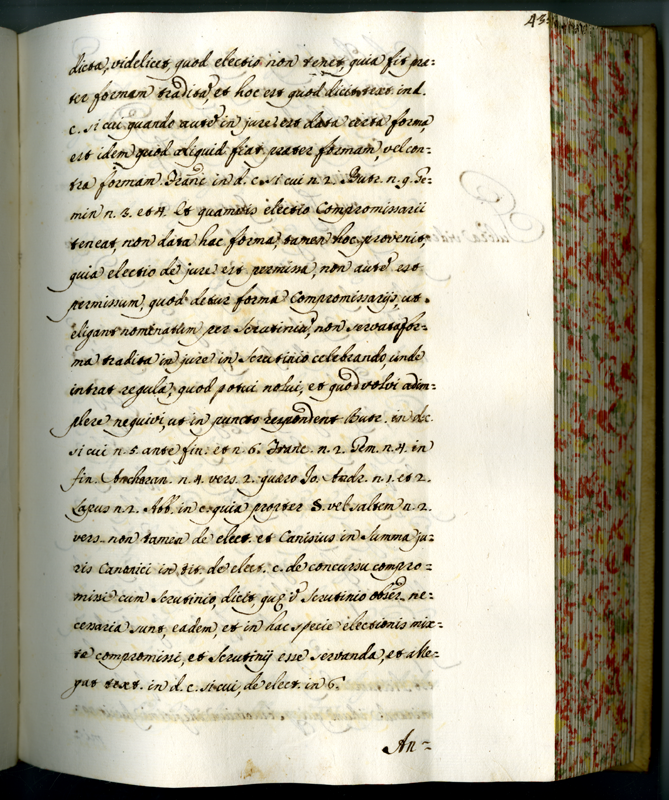 43
dicta, videlicet, quod electio non tenet, quia fit præ=
ter formam tradită, et hoc est quod dicit text. in d.
c. si cui quando autē in jure est data certa forma,
est idem quod aliquid fiat præter formam, vel con=
tra formam Franc. in d. c. si cui n. 2. Butr. n. 9. Ge=
min n. 3. et 4. Et quamvis electio Compromissarii
teneat, non data hac forma, tamen hoc provenit
quia electio de jure est permissa, non autē est
permissum, quod detur forma Compromissarijs, ut
eligant nominatum per Scrutiniū, non servata for=
ma tradita in jure in Scrutinio celebrando unde
intrat regula, quod potui nolui, et quod volui adim=
plere nequivi, ut in puncto respondent Butr. in d. c.
si cui n. 5. ante fin. et n. 6. Franc. n. 2. Gem. n. 4. in
fin. Anchoran. n. 4. vers. 2. quæro Jo. Andr. n. 1. et 2.
Lapus n. 2. Abb. in c. quia propter §. vel saltem n. 2.
vers. non tamen de elect. et Canisius in Summa ju=
ris Canonici in tit. de elect. c. de concursu compro=
missi cum Scrutinio, dicit, quæ in Scrutinio obser. ne=
cessaria sunt, eadem, et in hac specie electionis mix=
tæ compromissi, et Scrutinij esse servanda, et alle=
gat text. in d. c. si cui, de elect. in 6.
An=